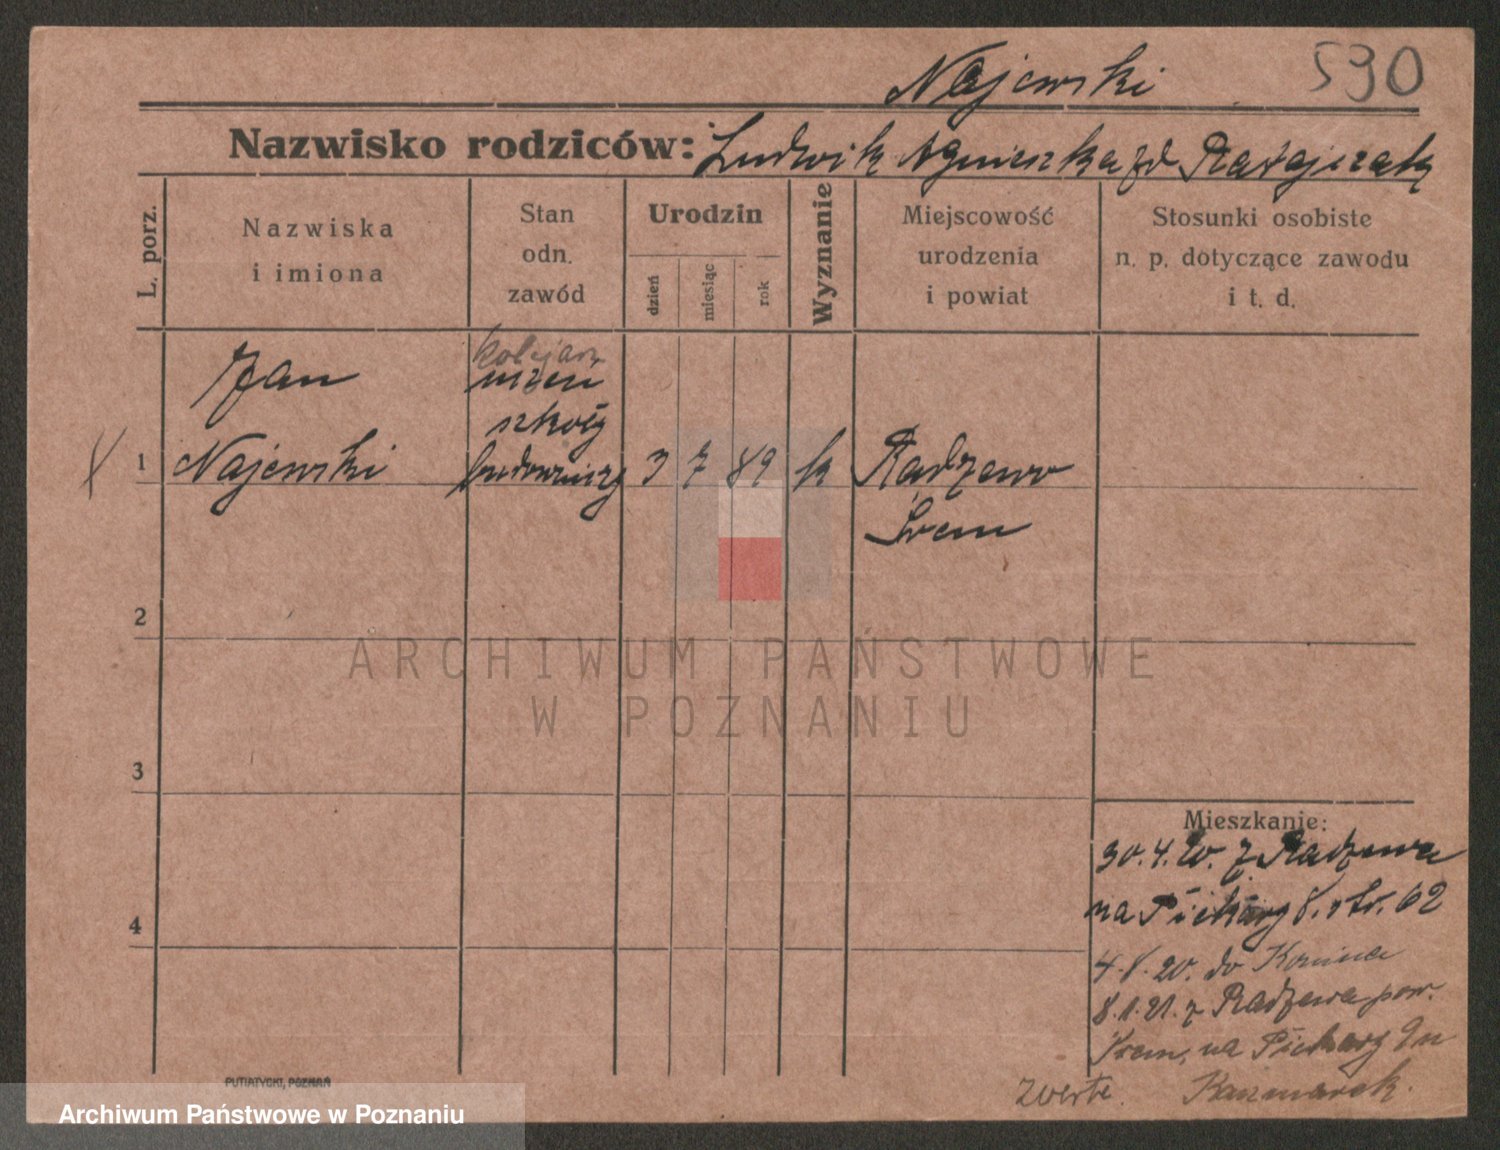 Najewski 590
Nazwisko rodziców: Ludwik Agnieszka zd Ratajczak
L. porz.
Nazwiska
i imiona
Stan
odn.
zawód
Urodzin
dzień
miesiąc
rok
Wyznanie
Miejscowość
urodzenia
i powiat
Stosunki osobiste
n. p. dotyczące zawodu
i t. d.
Jan
kolejarz
uczeń
szkoły
1 Najewski budowniczy 3 7 89 k Radzewo
Śrem
2
3
4
Mieszkanie:
30.4.20. z Radzewa
na Piekary 8. str. 62
4.8.20. do Konina
8.1.21. z Radzewa pow.
Śrem, na Piekary
Kaczmarek.
zwerte.
PUTIATYCKI, POZNAŃ
ARCHIWUM PAŃSTWOWE
W POZNANIU
Archiwum Państwowe w Poznaniu